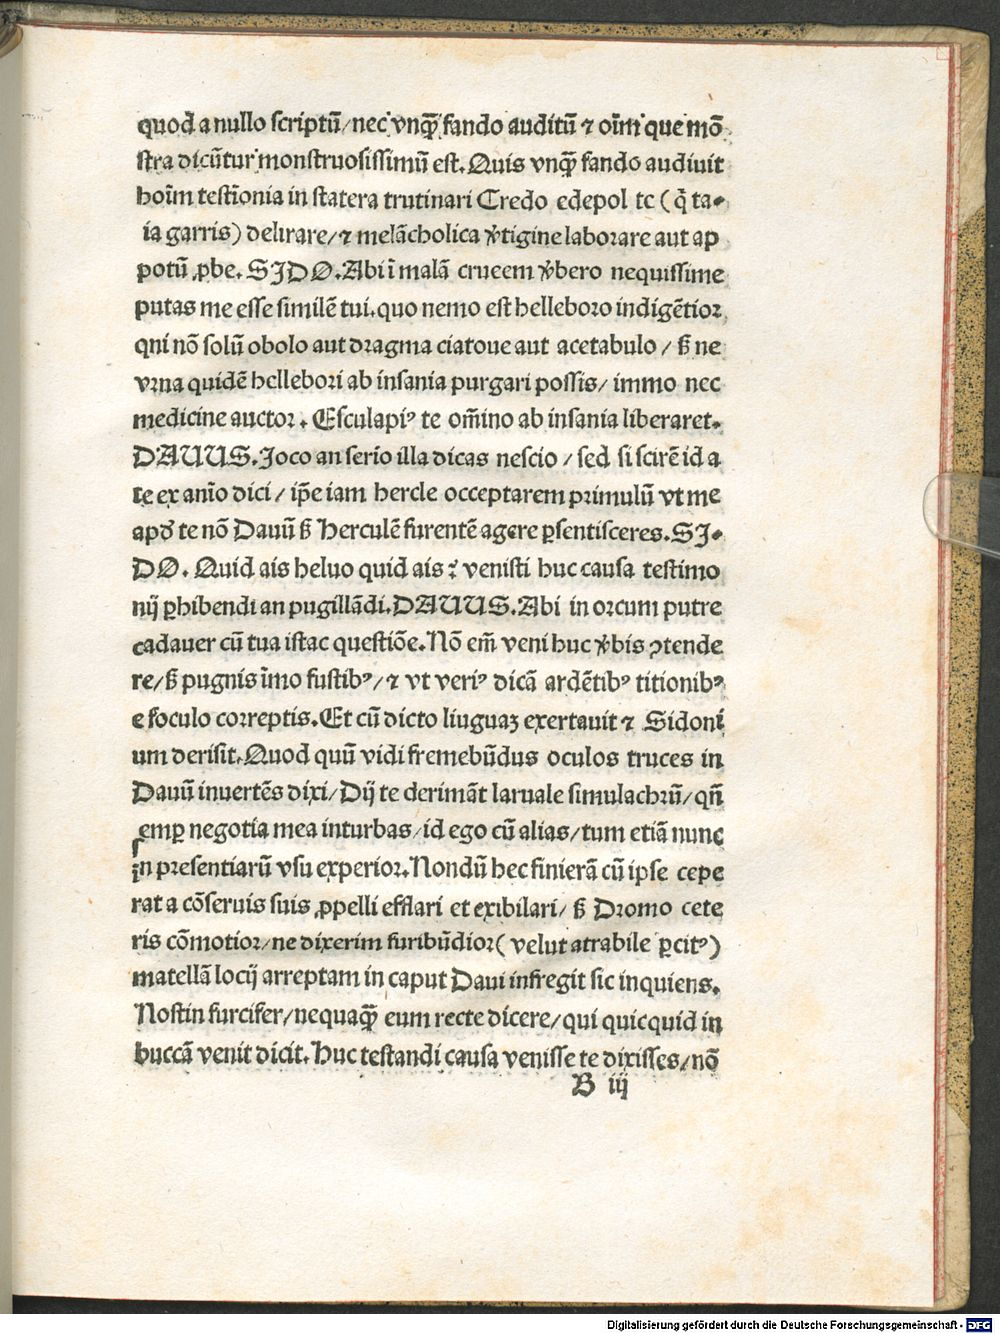 quod a nullo scriptū/nec vnꝗ̄ fando auditū ⁊ oīm que mō
stra dicūtur monstruosissimū est. Quis vnꝗ̄ fando audiuit
hoīm testīonia in statera trutinari Credo edepol te (q̄ ta⸗
ia garris) delirare/⁊ melācholica v̾tigine laborare aut ap
potū ꝓbe. SIDO. Abi ī malā crucem v̾bero nequissime
putas me esse similē tui. quo nemo est helleboro indigētior
qni nō solū obolo aut dragma ciatoue aut acetabulo / ß ne
vrna quidē hellebori ab insania purgari possis/ immo nec
medicine auctor. Esculapiꝰ te om̄ino ab insania liberaret.
DAUUS. Joco an serio illa dicas nescio / sed si scirē id a
te ex anīo dici / ip̄e iam hercle occeptarem primulū vt me
apd̕ te nō Dauū ß Herculē furentē agere ꝑsentisceres. SI⸗
DO. Quid ais heluo quid ais? venisti huc causa testimo
nij ꝑhibendi an pugillādi. DAUUS. Abi in orcum putre
cadauer cū tua istac questiōe. Nō em̄ veni huc v̾bis ꝯtende
re/ß pugnis īmo fustibꝰ/⁊ vt veriꝰ dicā ardētibꝰ titionibꝰ
e foculo correptis. Et cū dicto liuguaꝫ exertauit ⁊ Sidoni
um derisit. Quod quū vidi fremebūdus oculos truces in
Dauū inuertēs dixi/Dij te derimāt laruale simulachrū/qn̄
semꝑ negotia mea inturbas/id ego cū alias/tum etiā nunc
in presentiarū vsu experior. Nondū hec finierā cū ipse cepe
rat a cōseruis suis ꝓpelli efflari et exibilari/ ß Dromo cete
ris cōmotior/ne dixerim furibūdior( velut atrabile ꝑcitꝰ)
matellā locij arreptam in caput Daui infregit sic inquiens.
Nostin furcifer/nequaꝗ̄ eum recte dicere/qui quicquid in
buccā venit dicit. Huc testandi causa venisse te dixisses/nō
B iij
Digitalisierung gefördert durch die Deutsche Forschungsgemeinschaft - DFG